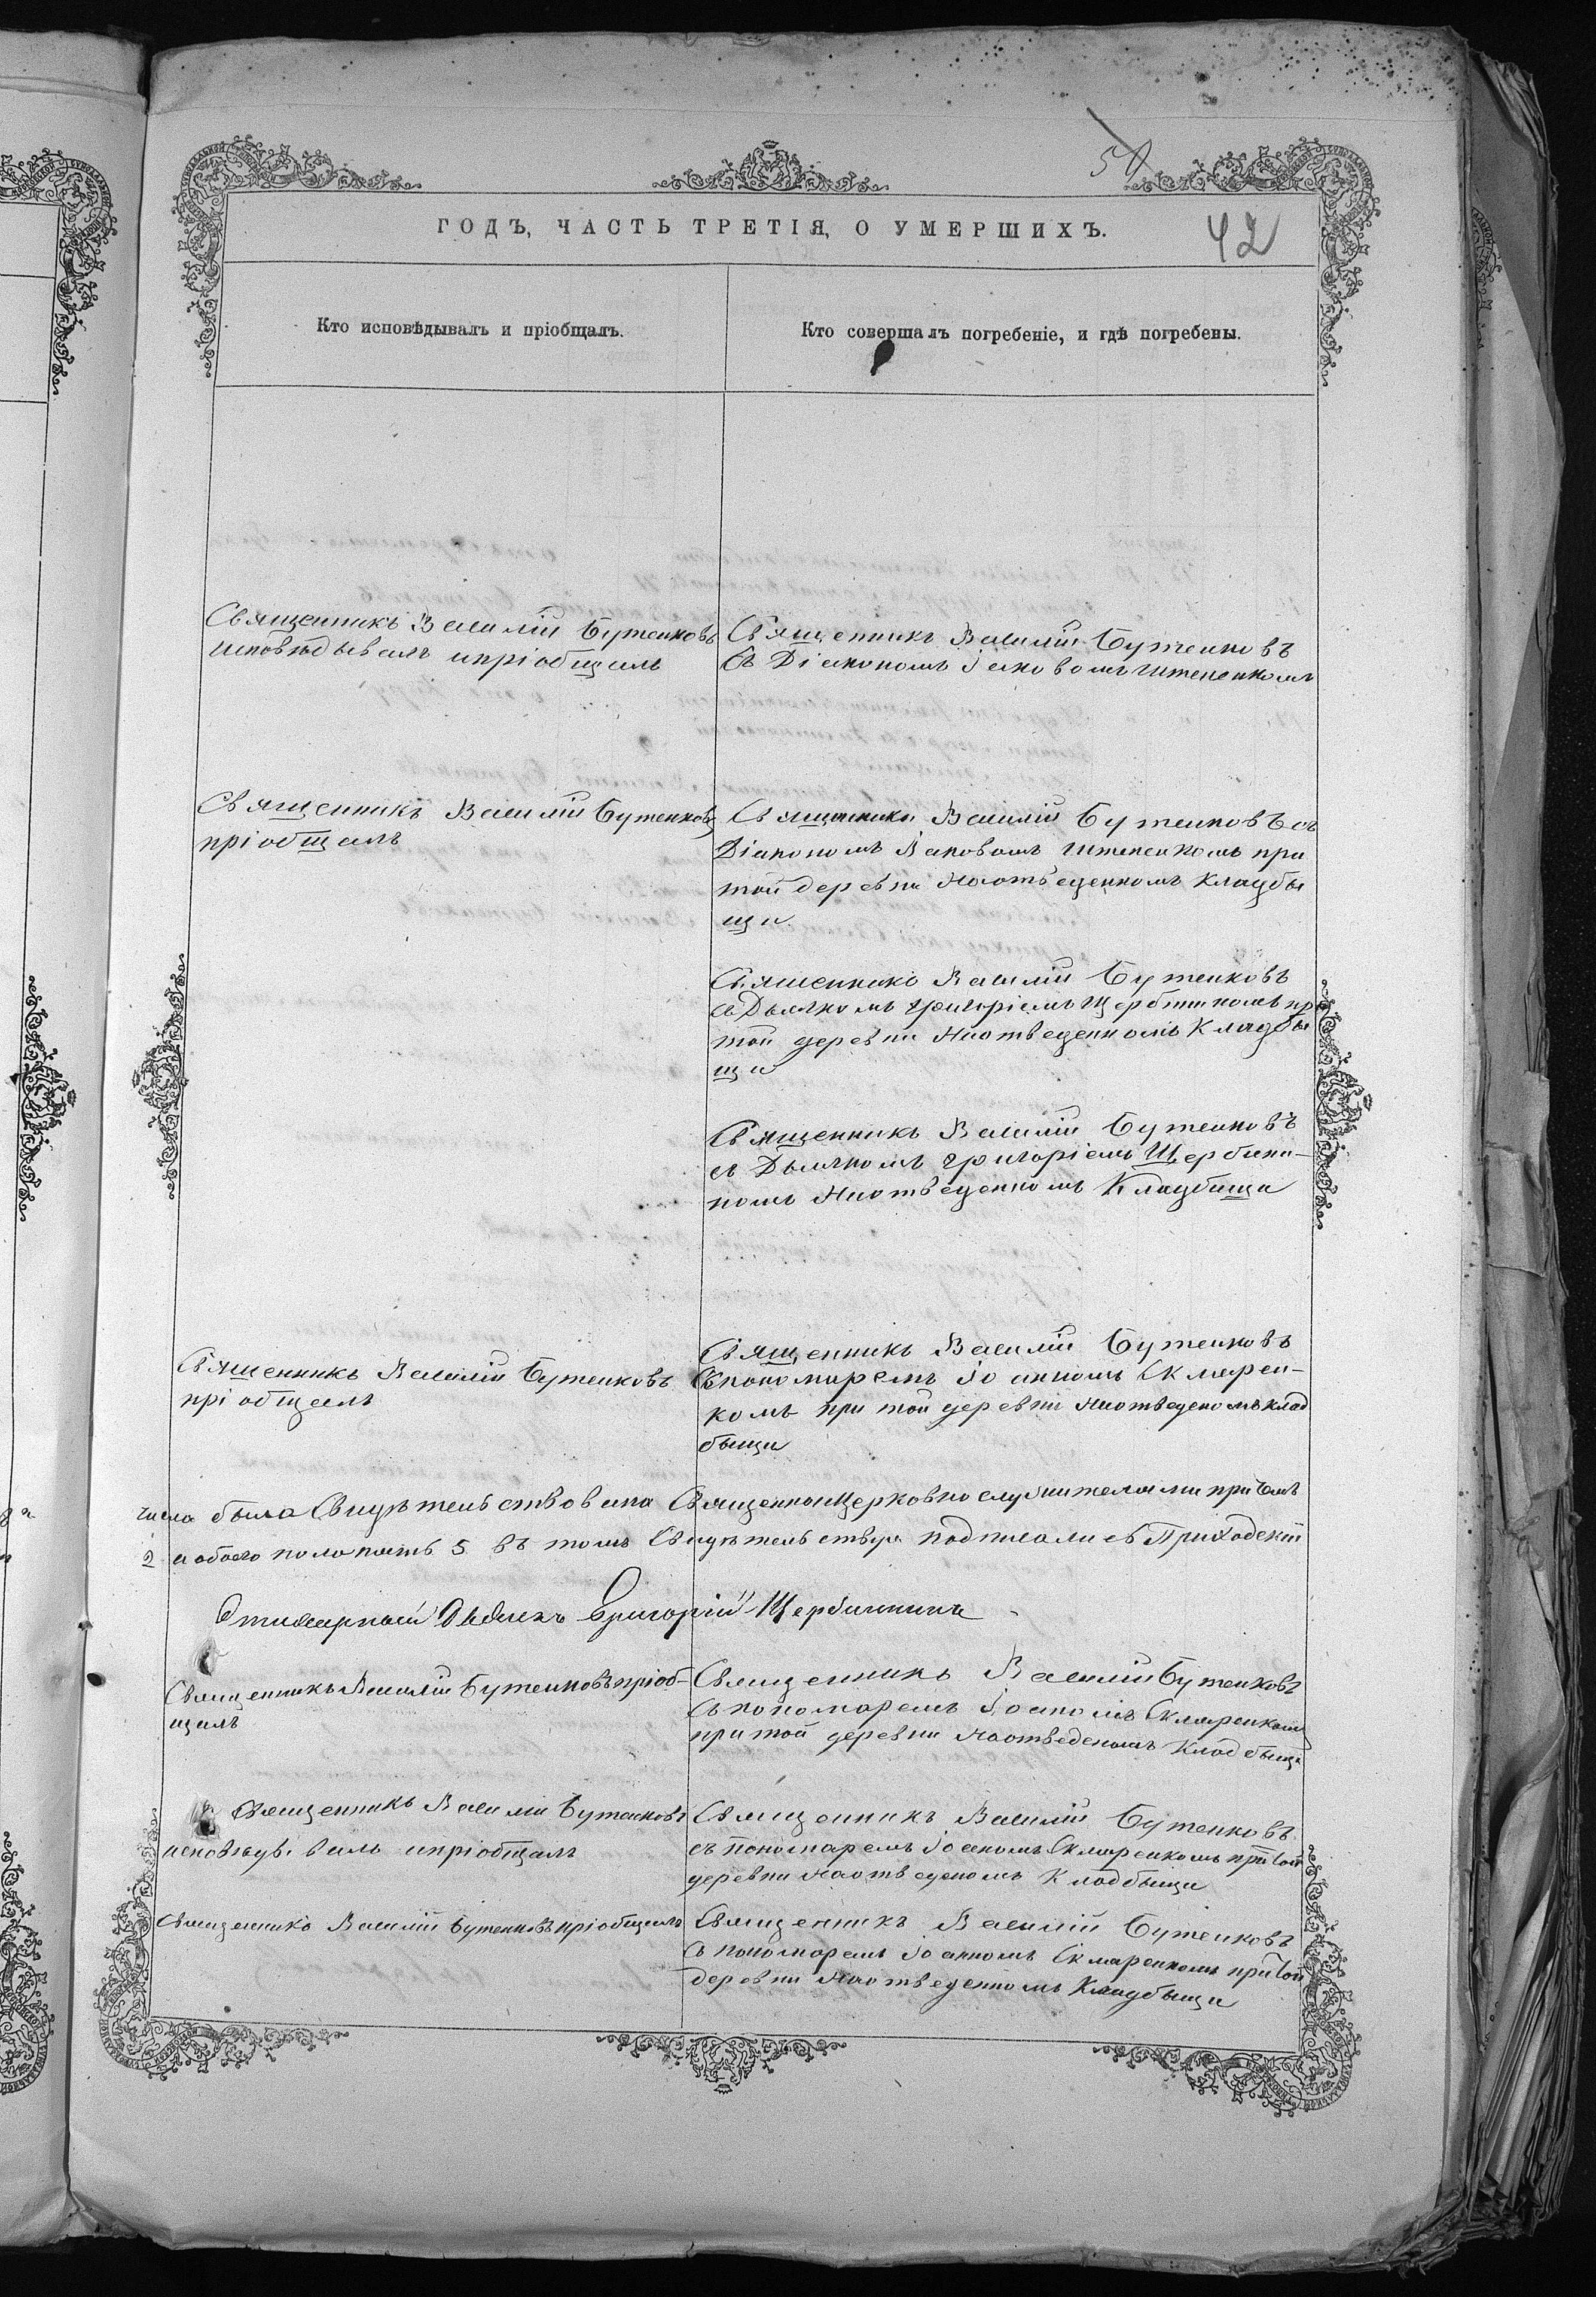 50
ГОДЪ, ЧАСТЬ ТРЕТІЯ, О УМЕРШИХЪ.
42
Кто исповѣдывалъ и пріобщалъ.
Кто совершалъ погребеніе, и гдѣ погребены.
Священникъ Василій Бутенковъ
исповѣдывалъ и пріобщалъ
Священникъ Василій Бутенковъ
Съ Діакономъ Іаковомъ Штепенкомъ
Священникъ Василій Бутенковъ
пріобщалъ
Священникъ Василій Бутенковъ съ
Діакономъ Іаковомъ Штепенкомъ при
той деревни Наотведенномъ Кладбы
щи
Священникъ Василій Бутенковъ
съ Дьячкомъ Григоріемъ Щербинкомъ при
той деревни Наотведенномъ Кладбы
щи
Священникъ Василій Бутенковъ
съ Дьячкомъ Григоріемъ Щербини-
номъ Наотведенномъ Кладбища
Священникъ Василій Бутенковъ
пріобщалъ
Священникъ Василій Бутенковъ
Съ пономаремъ Іоанномъ Скларен-
комъ при той деревни Наотведеномъ клад
быщи
числа была Свидѣтельствована Священноицерковнослужителами при чемъ
2 а обоего пола пять 5 въ томъ Свидѣтельствѣ подписались Приходскій
Григорій Щербинкинъ
Священникъ Василій Бутенковъ пріоб-
щалъ
Священникъ Василій Бутенковъ
Съ пономаремъ Іоаномъ Скларенкомъ
при той деревни Наотведеномъ Кладбыщи
Священникъ Василій Бутенковъ
исповѣдывалъ и пріобщалъ
Священникъ Василій Бутенковъ
съ пономаремъ Іоаномъ Скларенкомъ при той
деревни Наотведеномъ Кладбыщи
Священникъ Василій Бутенковъ пріобщалъ
Священникъ Василій Бутенковъ
Съ пономаремъ Іоанномъ Скларенкомъ при той
деревни Наотведенномъ Кладбыщи